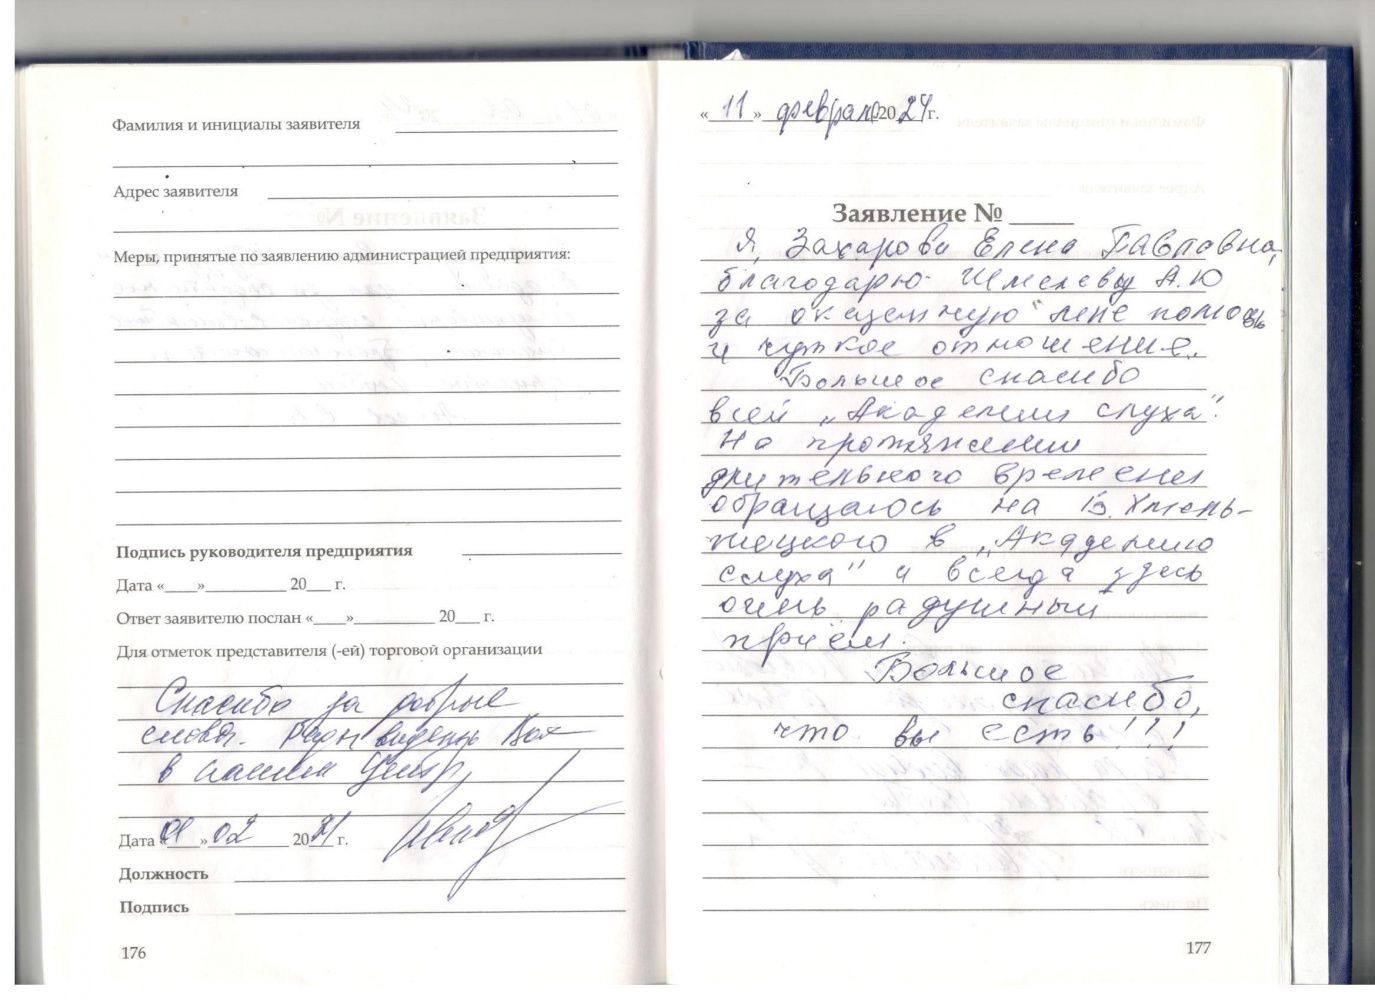 Фамилия и инициалы заявителя
Адрес заявителя
Меры, принятые по заявлению администрацией предприятия:
Подпись руководителя предприятия
Дата «___»__________ 20___ г.
Ответ заявителю послан «____»__________ 20___ г.
Для отметок представителя (-ей) торговой организации
Спасибо за добрые
слова. Рады видеть Вас
в нашем Центре
Дата « » 02 2021 г.
Должность
Подпись
176
«11» февраля 2021 г.
Заявление № _____
Я, Захарова Елена Павловна,
благодарю Шмелеву А.Ю
за оказанную мне помощь
и чуткое отношение.
Большое спасибо
всей „Академии слуха".
На протяжении
длительного времени
обращаюсь на Б. Хмель-
ницкого в „Академию
слуха" и всегда здесь
очень радушный
приём.
Большое
спасибо,
что вы есть!!!
177